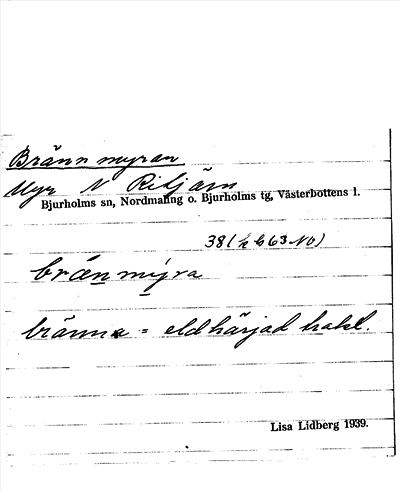 Brännmyran
Myr N
Bjurholms sn, Nordmaling o. Bjurholms tg, Västerbottens l.
brä́nmýra
bränna = eldhärjad trakt.
Lisa Lidberg 1939.